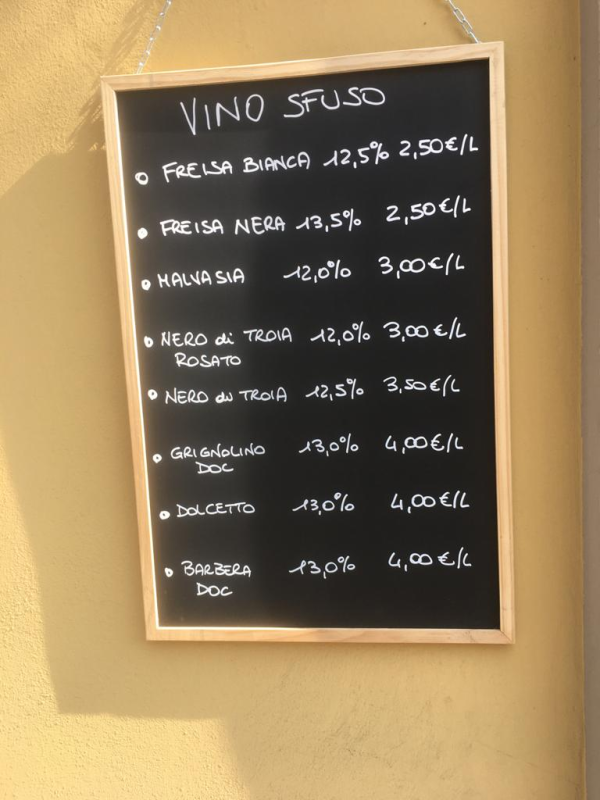 VINO SFUSO
FREISA BIANCA 12,5% 2,50€/L
FREISA NERA 13,5% 2,50€/L
MALVASIA 12,0% 3,00€/L
NERO di TROIA 12,0% 3,00€/L
ROSATO
NERO di TROIA 12,5% 3,50€/L
GRIGNOLINO 13,0% 4,00€/L
DOC
DOLCETTO 13,0% 4,00€/L
BARBERA 13,0% 4,00€/L
DOC